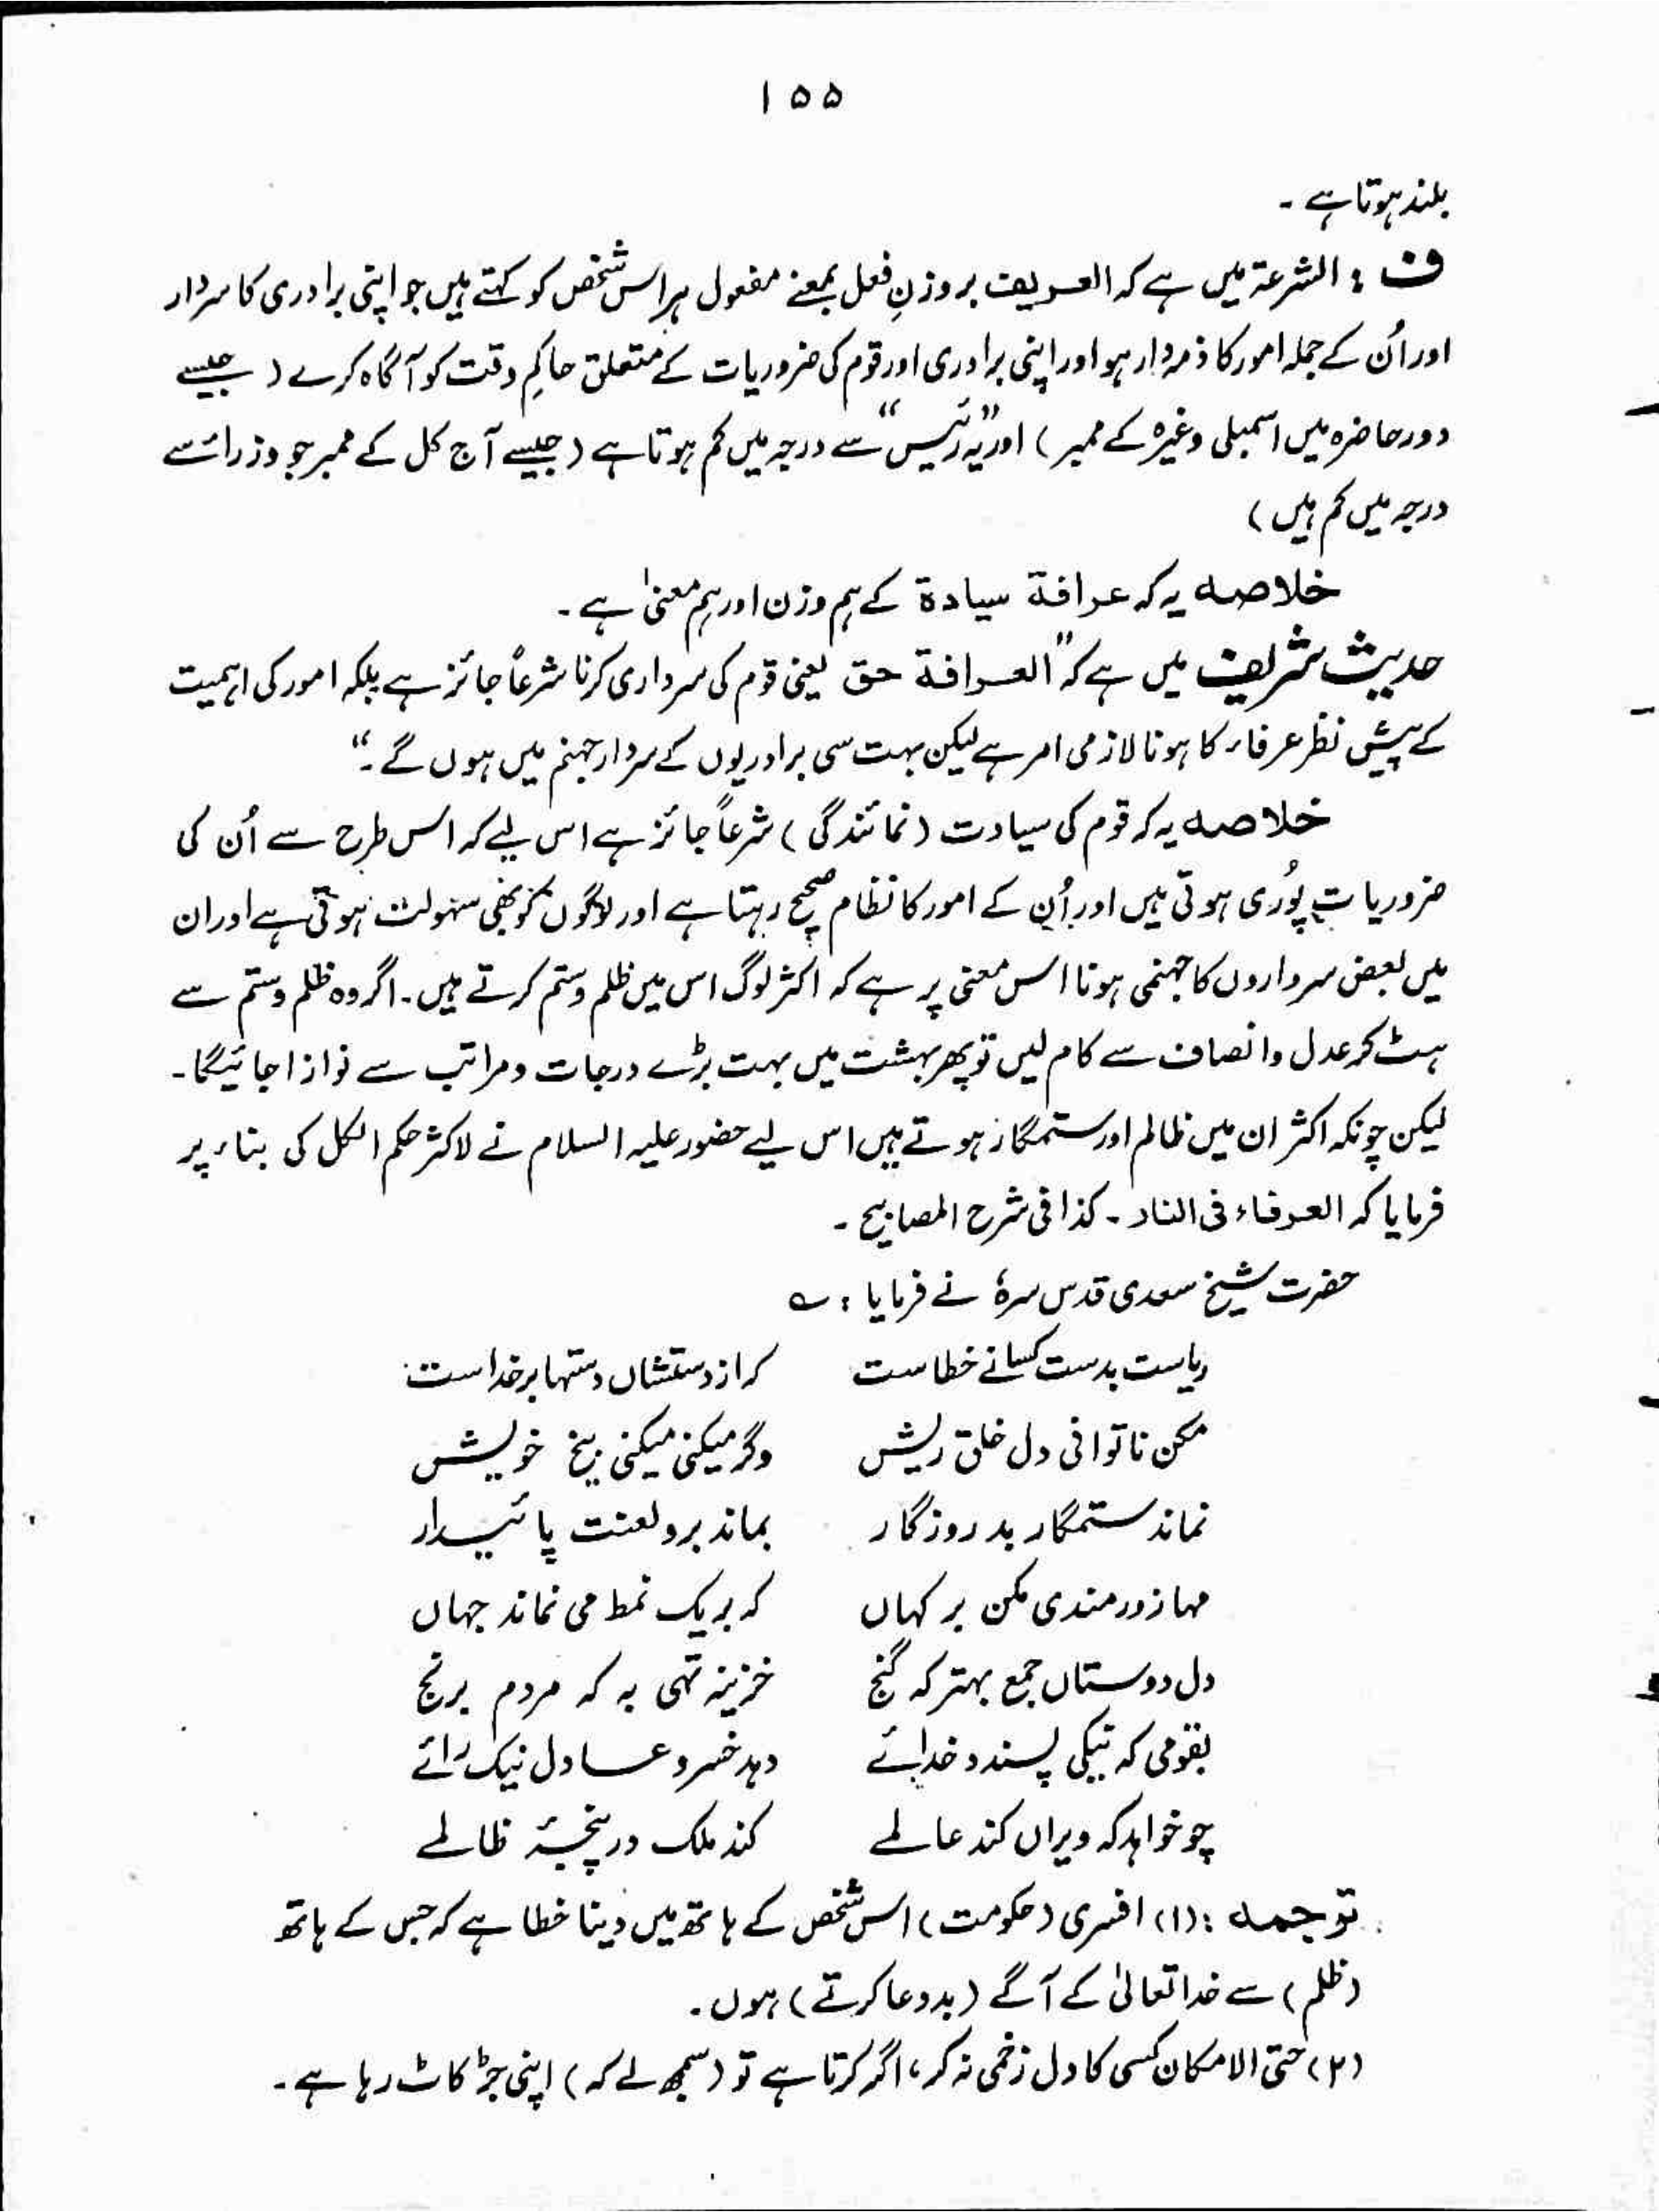 ۱۵۵
بلند ہوتا ہے ۔
ف : الشرعۃ میں ہے کہ العریف بروزنِ فعل بمعنے مفعول ہر اس شخص کو کہتے ہیں جو اپنی برادری کا سردار
اور اُن کے جملہ امور کا ذمہ دار ہو اور اپنی برادری اور قوم کی ضروریات کے متعلق حاکمِ وقت کو آگاہ کرے ( جیسے
دورِ حاضرہ میں اسمبلی وغیرہ کے ممبر ) اور یہ ”رئیس“ سے درجہ میں کم ہوتا ہے ( جیسے آج کل کے ممبر جو وزرا سے
درجہ میں کم ہیں )
خلاصہ یہ کہ عرافة سیادة کے ہم وزن اور ہم معنیٰ ہے ۔
حدیث شریف میں ہے کہ ”العرافة حق یعنی قوم کی سرداری کرنا شرعاً جائز ہے بلکہ امور کی اہمیت
کے پیش نظر عرفاء کا ہونا لازمی امر ہے لیکن بہت سی برادریوں کے سردار جہنم میں ہوں گے ۔“
خلاصہ یہ کہ قوم کی سیادت ( نمائندگی ) شرعاً جائز ہے اس لیے کہ اس طرح سے اُن کی
ضروریات پوُری ہوتی ہیں اور اُن کے امور کا نظام صحیح رہتا ہے اور لوگوں کو بھی سہولت ہوتی ہے اور ان
میں بعض سرداروں کا جہنمی ہونا اس معنی پر ہے کہ اکثر لوگ اس میں ظلم و ستم کرتے ہیں ۔ اگر وہ ظلم و ستم سے
ہٹ کر عدل و انصاف سے کام لیں تو پھر بہشت میں بہت بڑے درجات و مراتب سے نوازا جائیگا ۔
لیکن چونکہ اکثر ان میں ظالم اور ستمگار ہوتے ہیں اس لیے حضور علیہ السلام نے لاکثر حکم الکل کی بناء پر
فرمایا کہ العرفاء فی النار ۔ کذا فی شرح المصابیح ۔
حضرت شیخ سعدی قدس سرہٗ نے فرمایا : ؎
ریاست بدست کسانے خطاست کہ از دستشاں دستہا بر خداست
مکن تا توانی دل خلق ریش وگر میکنی میکنی بیخ خویش
نماند ستمگار بد روزگار بماند برو لعنت پائیدار
مہا زورمندی مکن بر کہاں کہ بر یک نمط می نماند جہاں
دل دوستاں جمع بہتر کہ گنج خزینہ تہی بہ کہ مردم برنج
بقومی کہ نیکی پسندد خدائے دہد خسرو عادل نیک رائے
چو خواہد کہ ویراں کند عالمے کند ملک در پنجۂ ظالمے
ترجمہ : (۱) افسری ( حکومت ) اس شخص کے ہاتھ میں دینا خطا ہے کہ جس کے ہاتھ
( ظلم ) سے خدا تعالیٰ کے آگے ( بددعا کرتے ) ہوں ۔
(۲) حتی الامکان کسی کا دل زخمی نہ کر ، اگر کرتا ہے تو ( سمجھ لے کہ ) اپنی جڑ کاٹ رہا ہے ۔